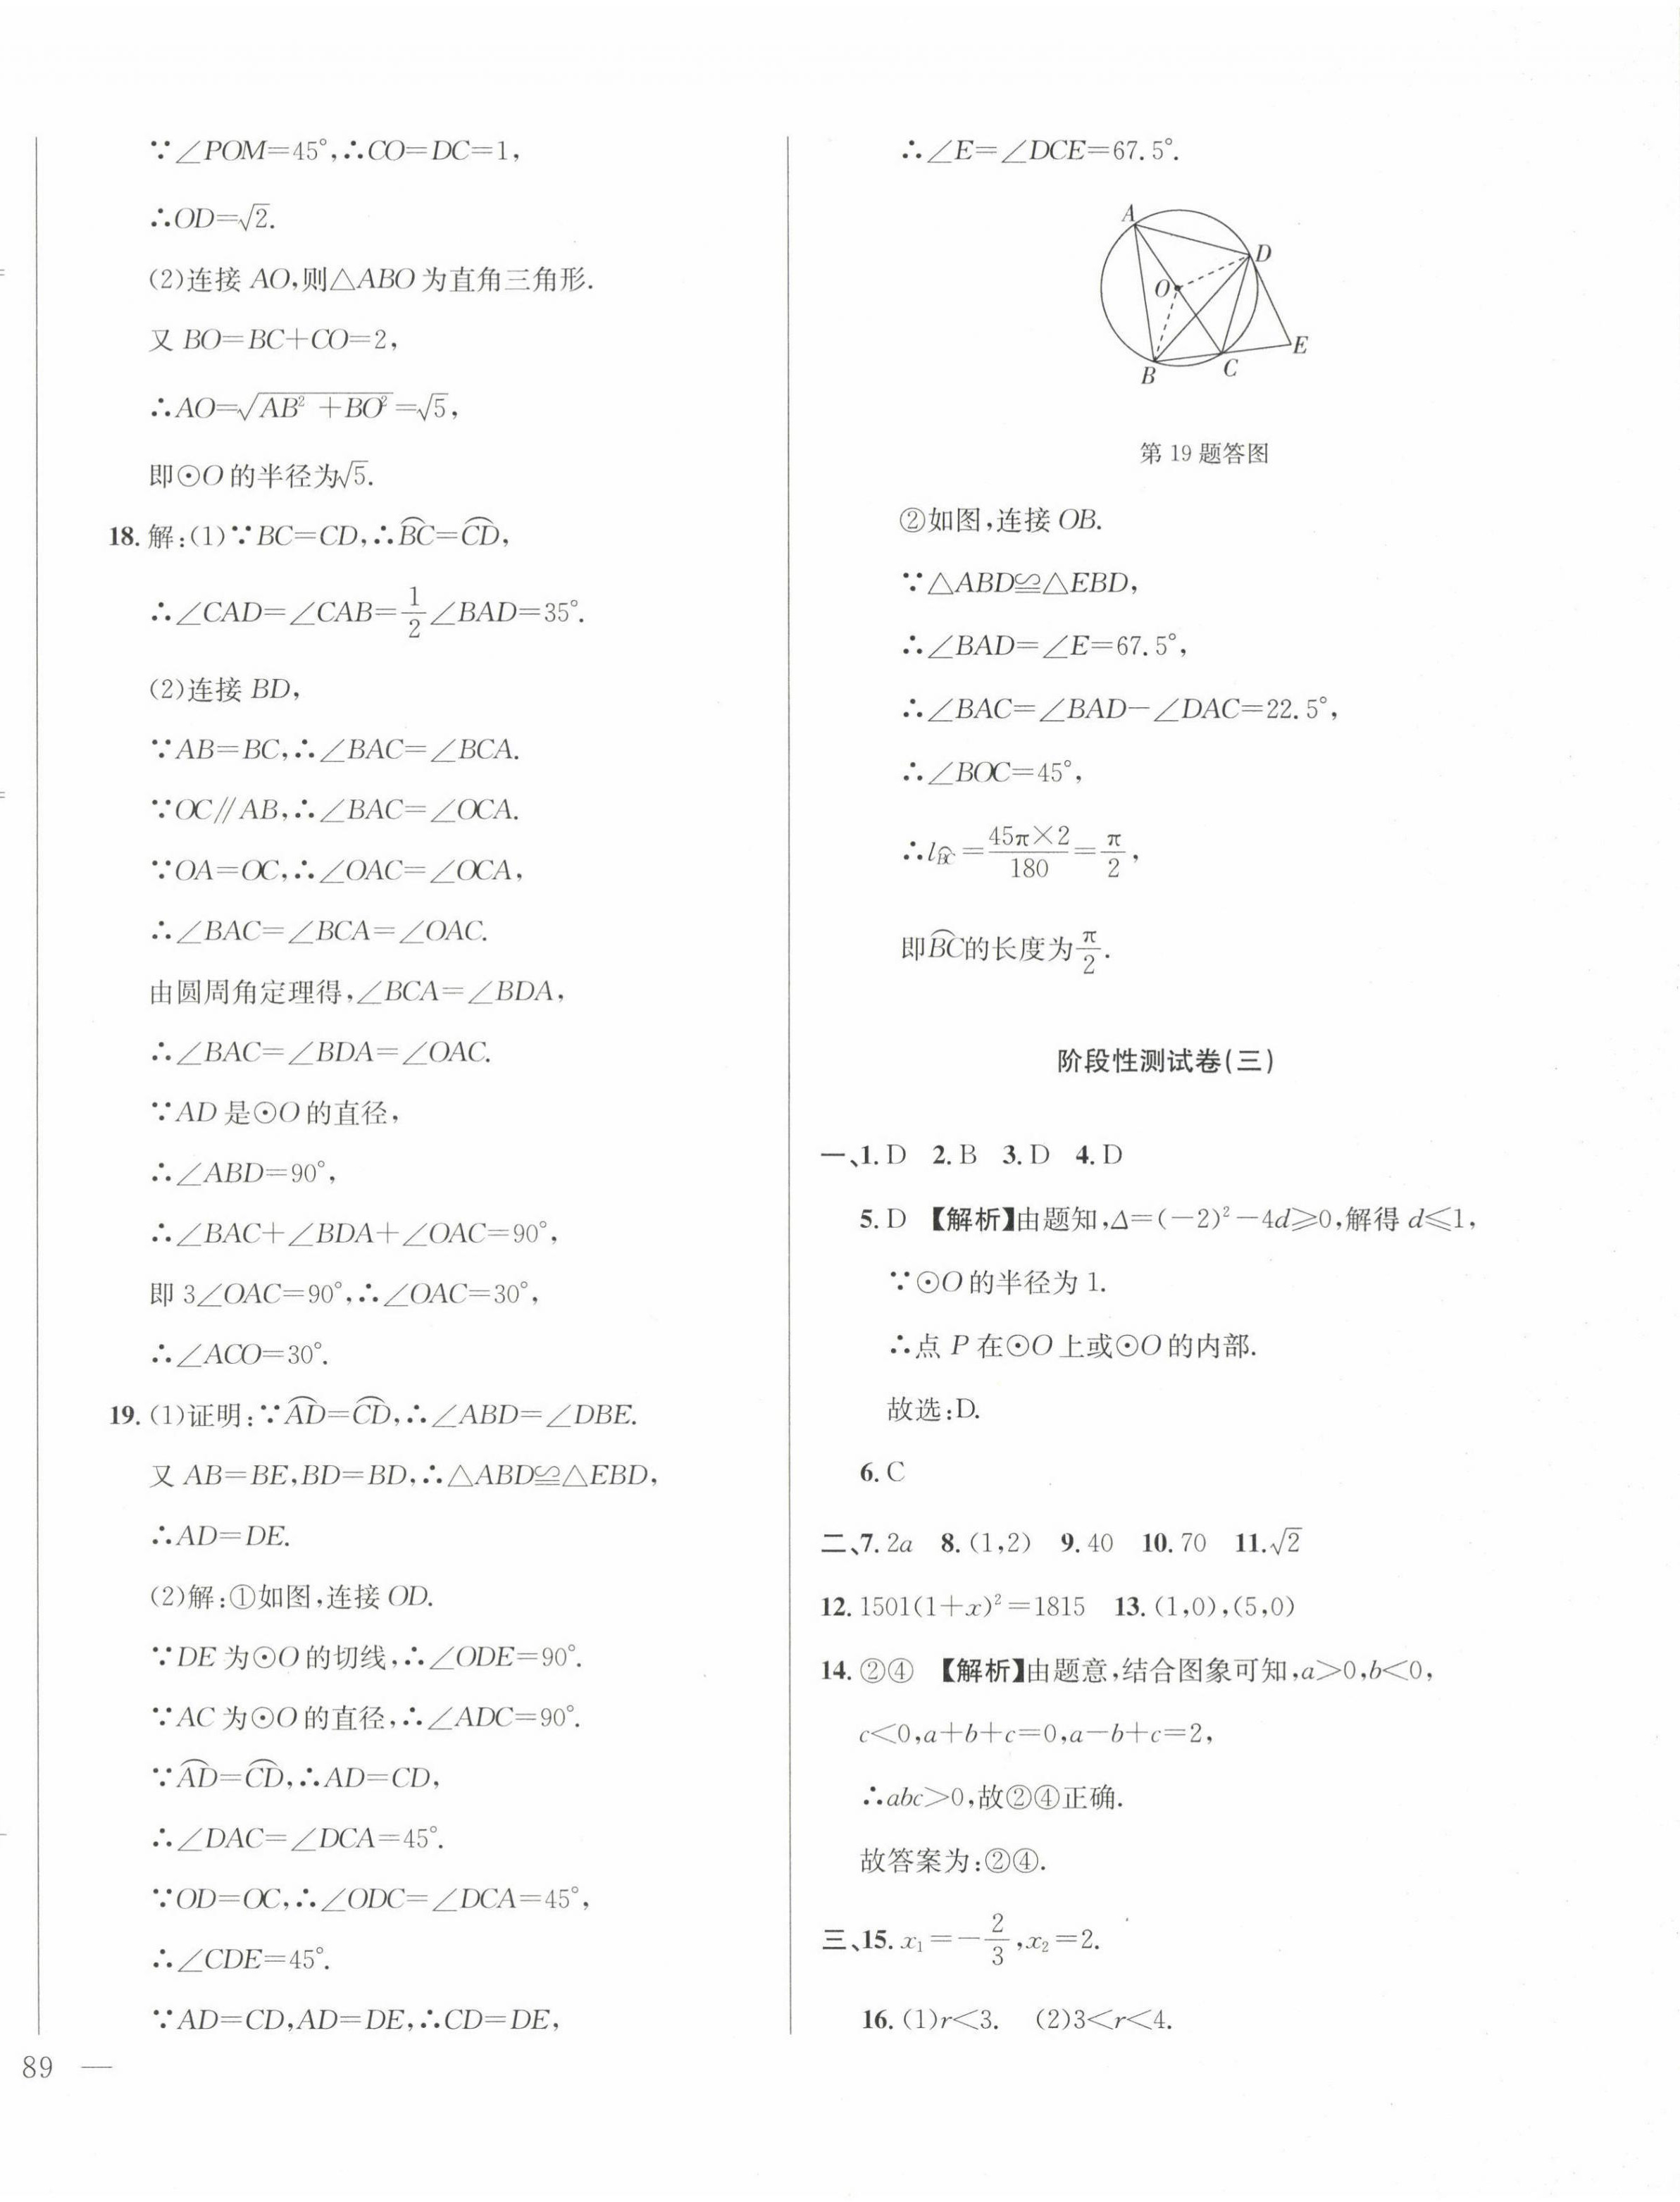 ∵∠POM=45°,∴CO=DC=1,
∴OD=√2.
(2)连接 AO,则△ABO 为直角三角形.
又 BO=BC+CO=2,
∴AO=√(AB²+BO²)=√5,
即⊙O 的半径为√5.
18. 解:(1)∵BC=CD,∴⌒BC=⌒CD,
∴∠CAD=∠CAB=1/2∠BAD=35°.
(2)连接 BD,
∵AB=BC,∴∠BAC=∠BCA.
∵OC∥AB,∴∠BAC=∠OCA.
∵OA=OC,∴∠OAC=∠OCA,
∴∠BAC=∠BCA=∠OAC.
由圆周角定理得,∠BCA=∠BDA,
∴∠BAC=∠BDA=∠OAC.
∵AD 是⊙O 的直径,
∴∠ABD=90°,
∴∠BAC+∠BDA+∠OAC=90°,
即 3∠OAC=90°,∴∠OAC=30°,
∴∠ACO=30°.
19. (1)证明:∵⌒AD=⌒CD,∴∠ABD=∠DBE.
又 AB=BE,BD=BD,∴△ABD≌△EBD,
∴AD=DE.
(2)解:①如图,连接 OD.
∵DE 为⊙O 的切线,∴∠ODE=90°.
∵AC 为⊙O 的直径,∴∠ADC=90°.
∵⌒AD=⌒CD,∴AD=CD,
∴∠DAC=∠DCA=45°.
∵OD=OC,∴∠ODC=∠DCA=45°,
∴∠CDE=45°.
∵AD=CD,AD=DE,∴CD=DE,
89 —
∴∠E=∠DCE=67.5°.
A
D
O
E
B
C
第 19 题答图
②如图,连接 OB.
∵△ABD≌△EBD,
∴∠BAD=∠E=67.5°,
∴∠BAC=∠BAD-∠DAC=22.5°,
∴∠BOC=45°,
∴l⌒BC=45π×2/180=π/2,
即⌒BC的长度为π/2.
阶段性测试卷(三)
一、1. D 2. B 3. D 4. D
5. D 【解析】由题知,Δ=(-2)²-4d≥0,解得 d≤1,
∵⊙O 的半径为 1.
∴点 P 在⊙O 上或⊙O 的内部.
故选:D.
6. C
二、7. 2a 8. (1,2) 9. 40 10. 70 11. √2
12. 1501(1+x)²=1815 13. (1,0),(5,0)
14. ②④ 【解析】由题意,结合图象可知,a>0,b<0,
c<0,a+b+c=0,a-b+c=2,
∴abc>0,故②④正确.
故答案为:②④.
三、15. x₁=-2/3,x₂=2.
16. (1)r<3. (2)3<r<4.